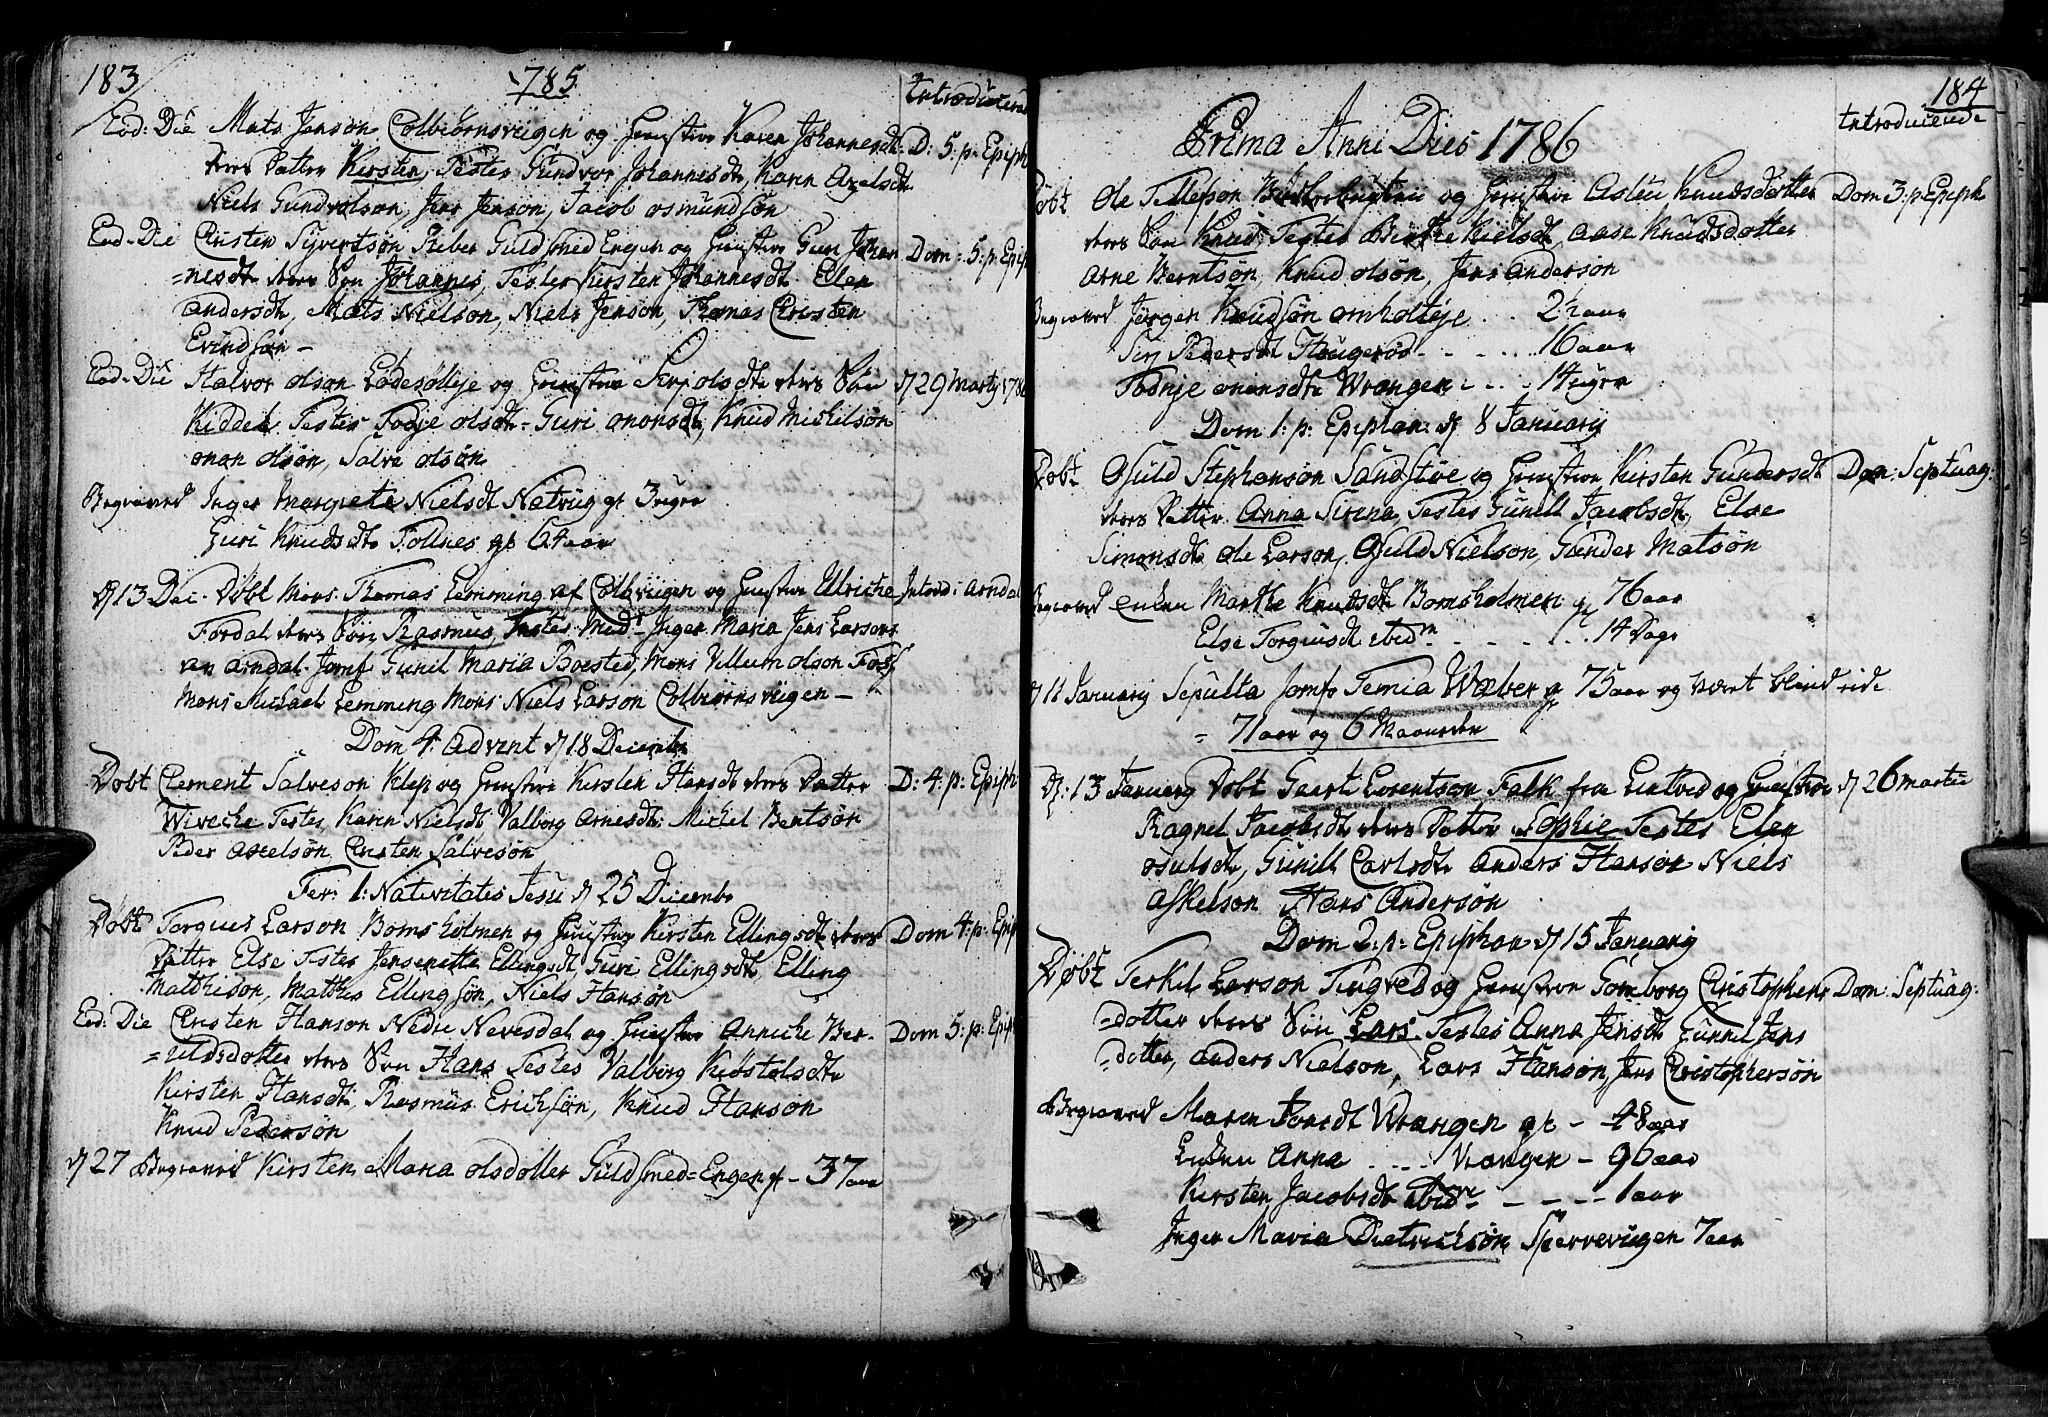 183
1785
Introducerede
Eod: Die Mats Jenson Colbiörnsviigen og Hustru Karen Johannesdt D: 5: p: Epiph
deres Datter Kirsten, Testes Gundvor Johannesdt, Karen Axelsdt
Niels Gundvolson, Jens Jenson, Jacob osmundsön
Eod-Die Cristen Syvertsön Guldsmed Engen og Hustru Guri Johan Dom: 5: p: Epiph
=nesdt deres Sön Johannes, Testes Kirsten Johannesdt Elen
Andersdt, Mats Nielson, Niels Jenson, Thomas Cristen
Evindsön -
Eod-Die Halvor olson Lödesöllie og Hustru Siri olsdt deres Sön d 29 Marty 1786
Kiddel Testes Todje olsdt- Guri ononsdt, Knud Michelsön
onon olsön, Salve olsön
Begraved Inger Margrete Nielsdt Natviig gl 3 uger
Guri Knudsdt Follnes gl 64 aar
d 13 Dec. Döbt Mons. Thomas Lemming af Colbviigen og Hustru Ulriche Introd: i Arndal
Fordal deres Sön Rasmus, Testes Mad: Inger Maria Jens Larsons
av Arndal Jomf Gunil Maria Boested, Mons Villum olson
Mons Michael Lemming Mons Niels Larson Colbiörnsviigen -
Dom 4. Advent d 18 Decembr
Döbt Clement Salveson Klep og Hustru Kirsten Hansdt deres Datter D: 4: p: Epiph
Wiveche Testes, Karen Nielsdt Valborg Arnesdt, Michel Bentsön
Peder Axelsön, Cristen Salvesön
Fer: 1: Nativitates Jesu d 25 Decembr
Döbt Torgius Larson Bomsholmen og Hustru Kirsten Ellingsdt deres Dom 4: p: Epiph
Datter Else Testes Jensenette Ellingsdt, Guri Ellingsdt Elling
Matthison, Matthis Ellingsön, Niels Hansön
Eod: Die Cristen Hanson Nedre Nevesdal og Hustru Anniche Ber- Dom 5: p: Epiph
=uldsdotter deres Sön Hans Testes Valborg Kiöstolsdt
Kirsten Hansdt, Rasmus Erichsön, Knud Hanson
Knud Pedersön
d 27 Begraved Kirsten Maria olsdotter Guldsmed=Engen gl - 37 aar
184
Introducerede
Prima Anni Dies 1786
Döbt Ole Tellefson og Hustru Aslou Knudsdotter Dom 3: p: Epiph
deres Sön Knud, Testes Birthe Kielsdt, Aase Knudsdotter
Arne Berntsön, Knud olsön, Jens Anderson
Begraved Jörgen Knudsön omholteje .. 2½ aar
Siri Pedersdt Haugeröd - - - .. 16 aar
Todnje ononsdt Wrangen - ... 14 uger
Dom 1: p: Epiphan: d 8 January
Döbt Osuld Stephanson Sandstöe og Hustru Kirsten Gundersdt Dom: Septuag:
deres Datter Anna Sirena, Testes Gunild Jacobsdt, Else
Simonsdt Ole Larson, Osuld Nielson, Gunder Matsön
Begraved Enken Marthe Knudsdt Bomsholmen gl 76 aar
Else Torgiusdt ibidm - - - - .. 14 Dage
d 11 January Sepulta Jomfr Temia Wæber gl 75 aar og været blind i de
= 71 aar og 6 Maaneder
d: 13 January Döbt Gaart Lorentson Falk fra og Hustru d 26 Martii
Ragnel Jacobsdt deres Datter Sophie Testes Elen
osulsdt, Gunild Carlsdt Anders Hanson Niels
Askelson Hans Andersön
Dom 2: p: Epiphan d 15 January
Döbt Terkil Larson Tingved og Hustru Gomborg Christophers Dom: Septuag:
=dotter deres Sön Lars Testes Anna Jensdt Gunnil Jens
=dotter, Anders Nielson, Lars Hanson, Jens Cristophersön
Begraved Maren Torsdt Wrangen gl - 48 aar
Enken Anna .... Wrangen - 96 aar
Kirsten Jacobsdt ibidm - - - - 1 aar
Inger Maria Dietrichsön Sperrevigen 7 aar